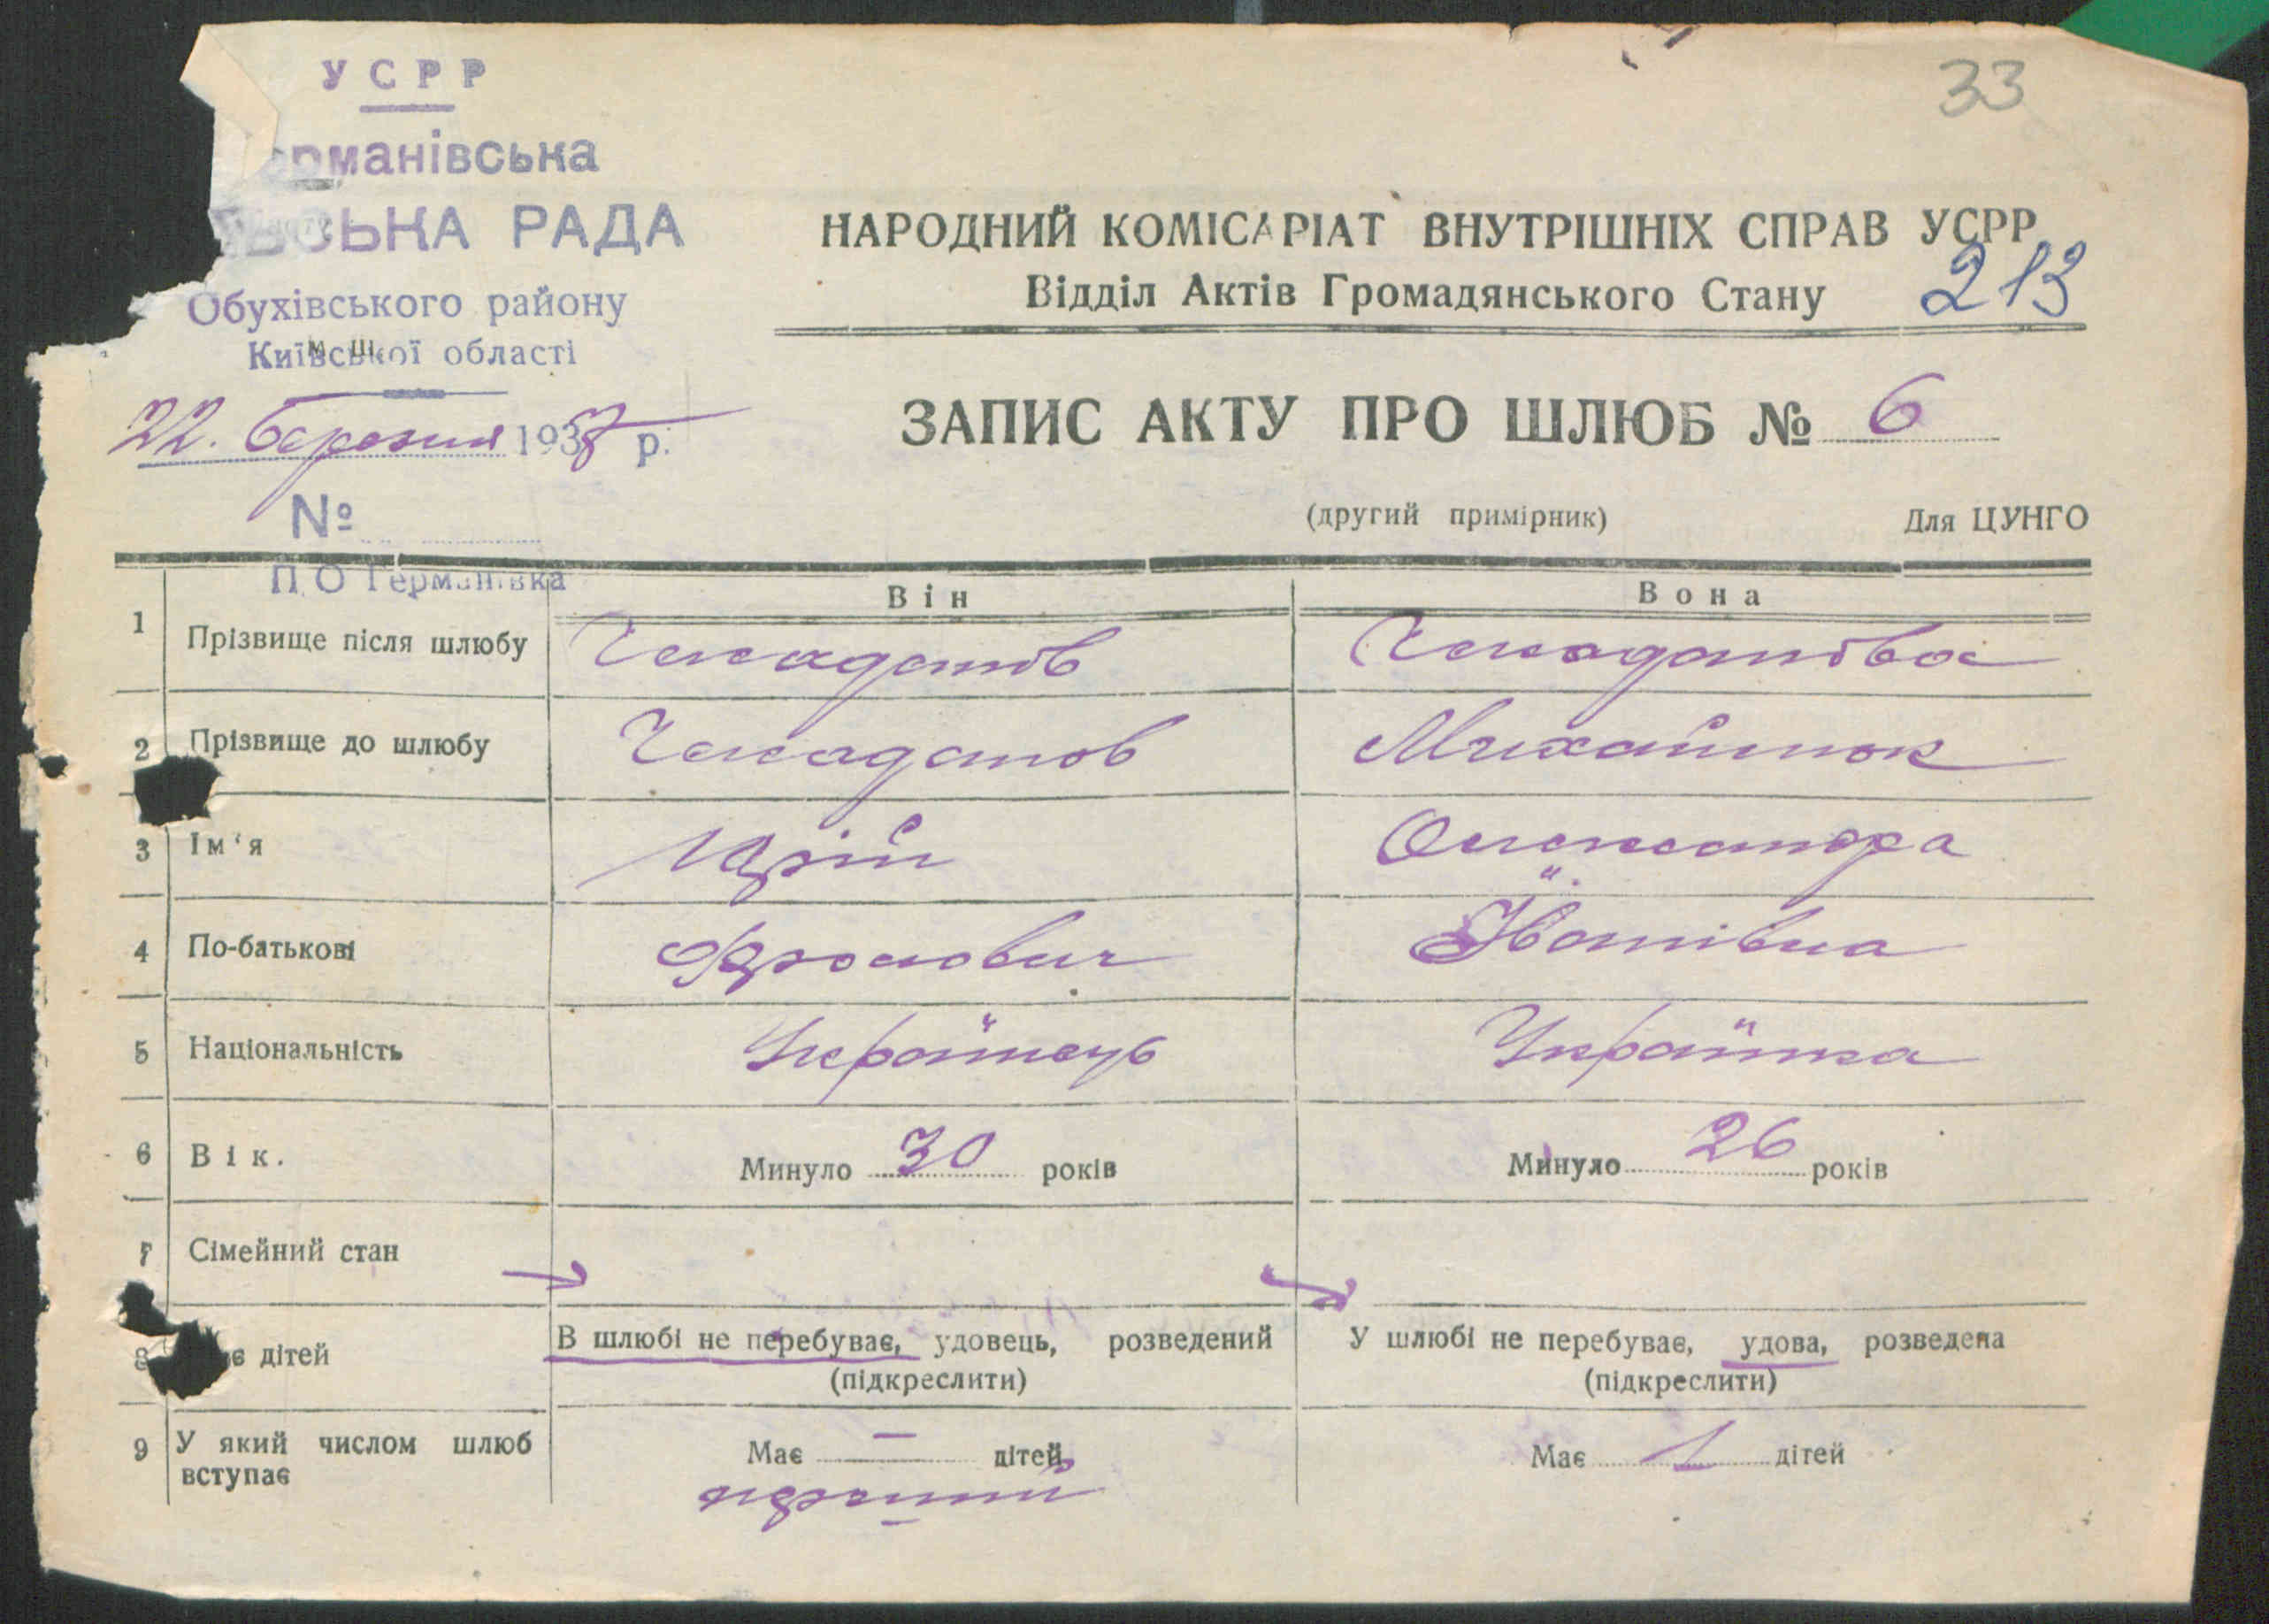 33
УСРР
рманівська
СЬКА РАДА
Обухівського району
Київської області
22. березня 1938 р.
№
П О Германівка
НАРОДНИЙ КОМІСАРІАТ ВНУТРІШНІХ СПРАВ УСРР
Відділ Актів Громадянського Стану 213
ЗАПИС АКТУ ПРО ШЛЮБ № 6
(другий примірник) Для ЦУНГО
Він Вона
1 Прізвище після шлюбу
2 Прізвище до шлюбу Михайлюк
3 Ім‘я Юрій Олександра
4 По-батькові Фролович Іванівна
5 Національність Українець Українка
6 Вік. Минуло 30 років Минуло 26 років
7 Сімейний стан
В шлюбі не перебуває, удовець, розведений У шлюбі не перебуває, удова, розведена
(підкреслити) (підкреслити)
8 є дітей
9 У який числом шлюб вступає Має — дітей Має 1 дітей
перший